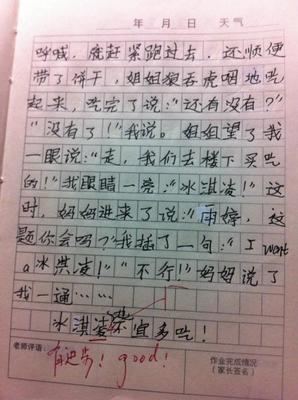 年 月 日 天气
呼喊，我赶紧跑过去，还顺便
带了饼干，姐姐狼吞虎咽地吃
起来，吃完了说：“还有没有？”
“没有了！”我说。姐姐望了我
一眼说：“走，我们去楼下买吃
的！”我眼睛一亮：“冰淇凌！”这
时，妈妈进来了说：“雨婷，这
题你会吗？”我插了一句：“I want
a冰淇凌！”“不行！”妈妈说了
我一通……
冰淇凌不宜多吃！
老师评语：
有进步！good！
作业完成情况
（家长签名）